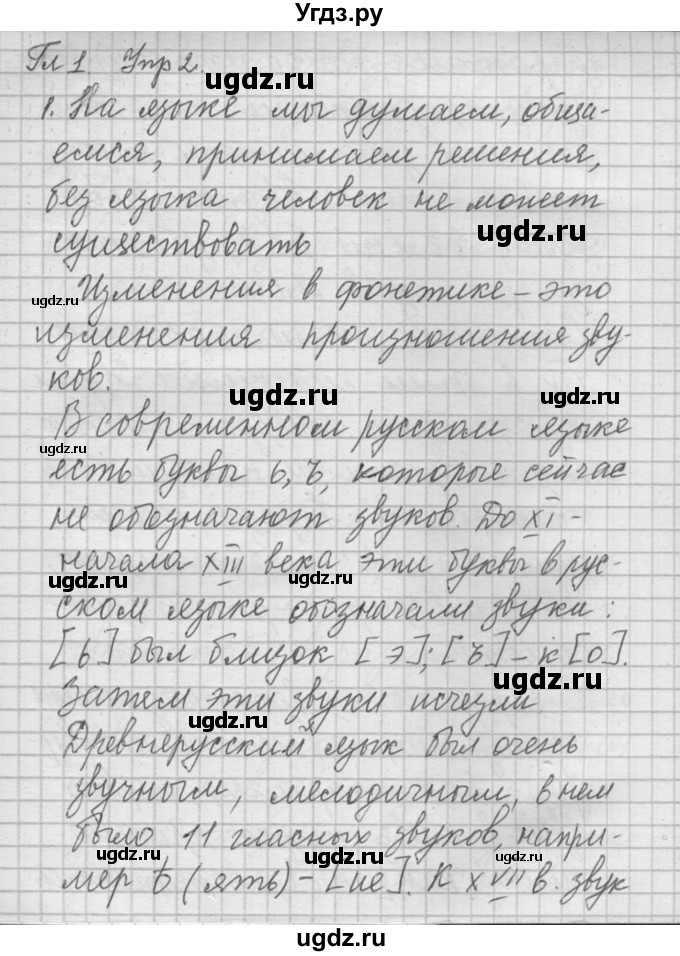 Угдз.ру
Гл 1 Упр 2
ugdz.ru
1. На языке мы думаем, обща-
емся, принимаем решения,
без языка человек не может
ugdz.ru
существовать
Изменения в фонетике – это
ugdz.ru
изменения произношения зву-
ков.
ugdz.ru
ugdz.ru
В современном русском языке
ugdz.ru
есть буквы ь, ъ, которые сейчас
не обозначают звуков. До XI -
начала XIII века эти буквы в рус-
ugdz.ru
ugdz.ru
ском языке обозначали звуки:
[ь] был близок [э]; [ъ] – к [о].
ugdz.ru
Затем эти звуки исчезли
ugdz.ru
Древнерусский язык был очень
звучным, мелодичным, в нем
ugdz.ru
было 11 гласных звуков, напри-
ugdz.ru
ugdz.ru
мер ѣ (ять) – [ие]. К XVII в. звук
ugdz.ru